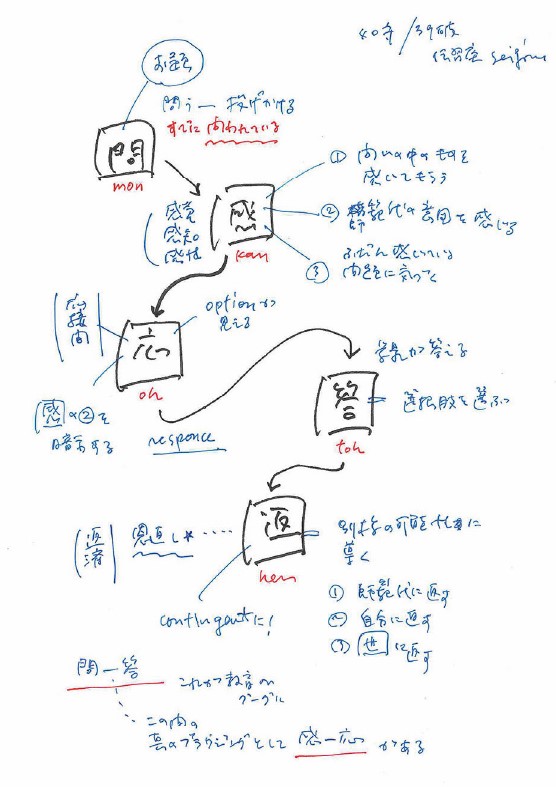 40守/39破
伝習座 seigow
お題
問
mon
問う — 投げかける
すでに問われている
感
kan
感覚
感知
感性
① 問いの中のものを
感じてもらう
② 師範代の意図を感じる
③ ふだん感じている
問題に気づく
応
oh
応接間
optionが
見える
感の②を
暗示する
responce
答
toh
学衆が答える
選択肢を選ぶ
返
hen
返済
恩返し
別様の可能性に
導く
contingentに!
① 師範代に返す
② 自分に返す
③ 世に返す
問—答
これが教育の
グーグルに
この間の
真のブラウジングとして 感—応 がある